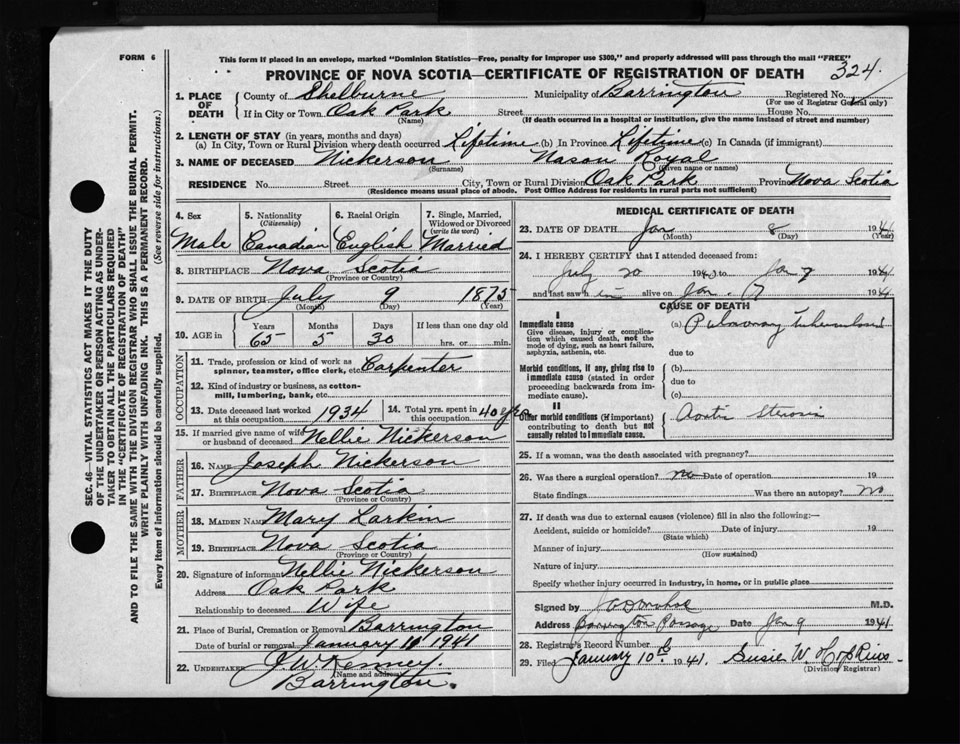 FORM 6
This form if placed in an envelope, marked "Dominion Statistics—Free, penalty for improper use $300," and properly addressed will pass through the mail "FREE"
PROVINCE OF NOVA SCOTIA—CERTIFICATE OF REGISTRATION OF DEATH 324.
SEC. 46—VITAL STATISTICS ACT MAKES IT THE DUTY
OF THE UNDERTAKER OR PERSON ACTING AS UNDER-
TAKER TO OBTAIN ALL THE PARTICULARS REQUIRED
IN THE "CERTIFICATE OF REGISTRATION OF DEATH"
AND TO FILE THE SAME WITH THE DIVISION REGISTRAR WHO SHALL ISSUE THE BURIAL PERMIT.
WRITE PLAINLY WITH UNFADING INK. THIS IS A PERMANENT RECORD.
Every item of information should be carefully supplied. (See reverse side for instructions.)
1. PLACE OF DEATH County of Shelburne Municipality of Barrington Registered No.
(For use of Registrar General only)
If in City or Town Oak Park Street House No.
(Name) (If death occurred in a hospital or institution, give the name instead of street and number)
2. LENGTH OF STAY (in years, months and days)
(a) In City, Town or Rural Division where death occurred Lifetime (b) In Province Lifetime (c) In Canada (if immigrant)
3. NAME OF DECEASED Nickerson Nason Royal
(Surname) (Given name or names)
RESIDENCE No. Street City, Town or Rural Division Oak Park Province Nova Scotia
(Residence means usual place of abode. Post Office Address for residents in rural parts not sufficient)
4. Sex Male
5. Nationality (Citizenship) Canadian
6. Racial Origin English
7. Single, Married, Widowed or Divorced (write the word) Married
8. BIRTHPLACE Nova Scotia
(Province or Country)
9. DATE OF BIRTH July 9 1875
(Month) (Day) (Year)
10. AGE in Years Months Days If less than one day old
65 5 30 hrs. or min.
OCCUPATION
11. Trade, profession or kind of work as spinner, teamster, office clerk, etc. Carpenter
12. Kind of industry or business, as cotton-mill, lumbering, bank, etc.
13. Date deceased last worked at this occupation 1934
14. Total yrs. spent in this occupation 40 yrs
15. If married give name of wife or husband of deceased Nellie Nickerson
FATHER
16. NAME Joseph Nickerson
17. BIRTHPLACE Nova Scotia
(Province or Country)
MOTHER
18. MAIDEN NAME Mary Larkin
19. BIRTHPLACE Nova Scotia
(Province or Country)
20. Signature of informant Nellie Nickerson
Address Oak Park
Relationship to deceased Wife
21. Place of Burial, Cremation or Removal Barrington
Date of burial or removal January 10 1941
22. UNDERTAKER J W Kenney.
(Name and address)
Barrington.
MEDICAL CERTIFICATE OF DEATH
23. DATE OF DEATH Jan 8 1941
(Month) (Day) (Year)
24. I HEREBY CERTIFY that I attended deceased from:
July 20 1940 to Jan 7 1941
and last saw h im alive on Jan. 7 1941
CAUSE OF DEATH
I
Immediate cause (a) Pulmonary Tuberculosis
Give disease, injury or complication which caused death, not the mode of dying, such as heart failure, asphyxia, asthenia, etc.
due to
Morbid conditions, if any, giving rise to immediate cause (stated in order proceeding backwards from immediate cause).
(b)
due to
(c)
II
Other morbid conditions (if important) contributing to death but not causally related to immediate cause. Aortic Stenosis
25. If a woman, was the death associated with pregnancy?
26. Was there a surgical operation? no Date of operation 19
State findings Was there an autopsy? no
27. If death was due to external causes (violence) fill in also the following:—
Accident, suicide or homicide? Date of injury 19
(State which)
Manner of injury
(How sustained)
Nature of injury
Specify whether injury occurred in industry, in home, or in public place
Signed by M.D.
Address Barrington Passage Date Jan 9 1941.
28. Registrar's Record Number
29. Filed January 10th 1941. Susie W. Hopkins
(Division Registrar)